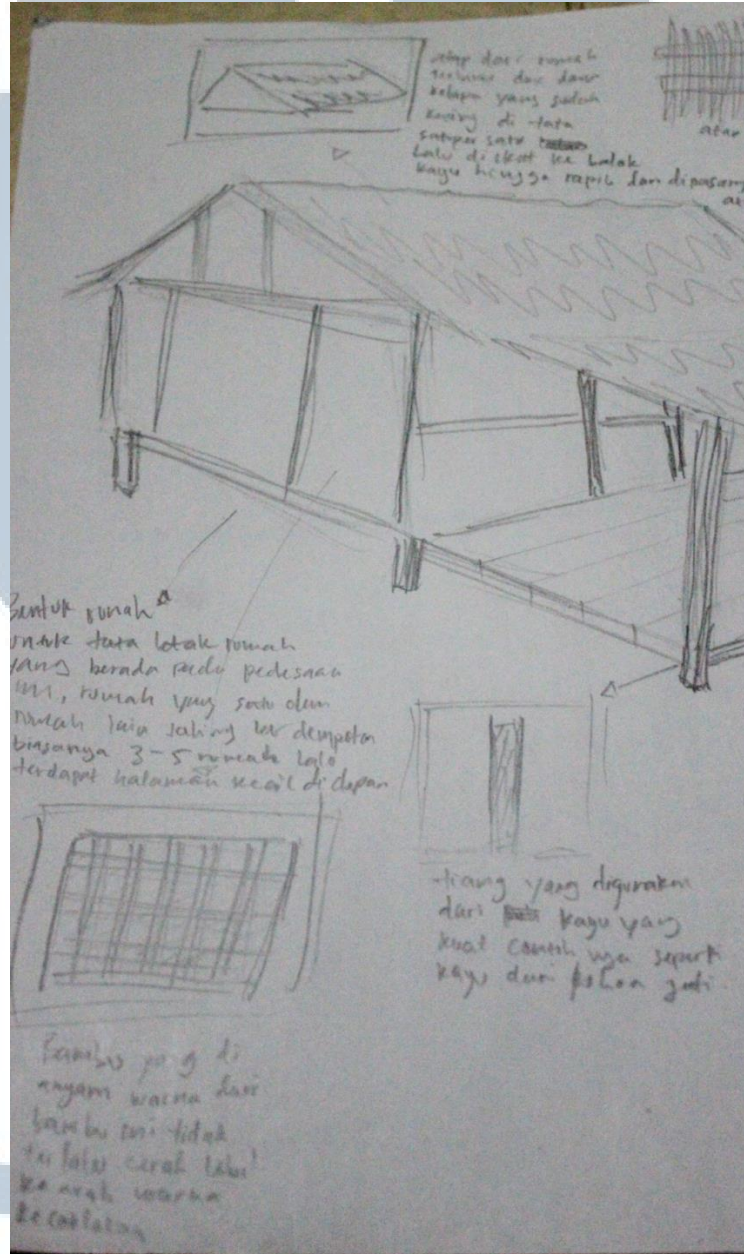 atap dari rumah
terbuat dari daun
kelapa yang sudah
kering di tata
satu per satu
lalu di ikat ke balok
kayu hingga rapih dan dipasang
atap
Bentuk rumah
untuk tata letak rumah
yang berada pada pedesaan
ini, rumah yang satu dan
rumah lain saling berdempetan
biasanya 3-5 rumah lalu
terdapat halaman kecil di depan
tiang yang digunakan
dari kayu yang
kuat contoh nya seperti
kayu dari pohon jati.
Bambu yang di
anyam warna dari
bambu ini tidak
terlalu cerah lebih
ke arah warna
kecoklatan